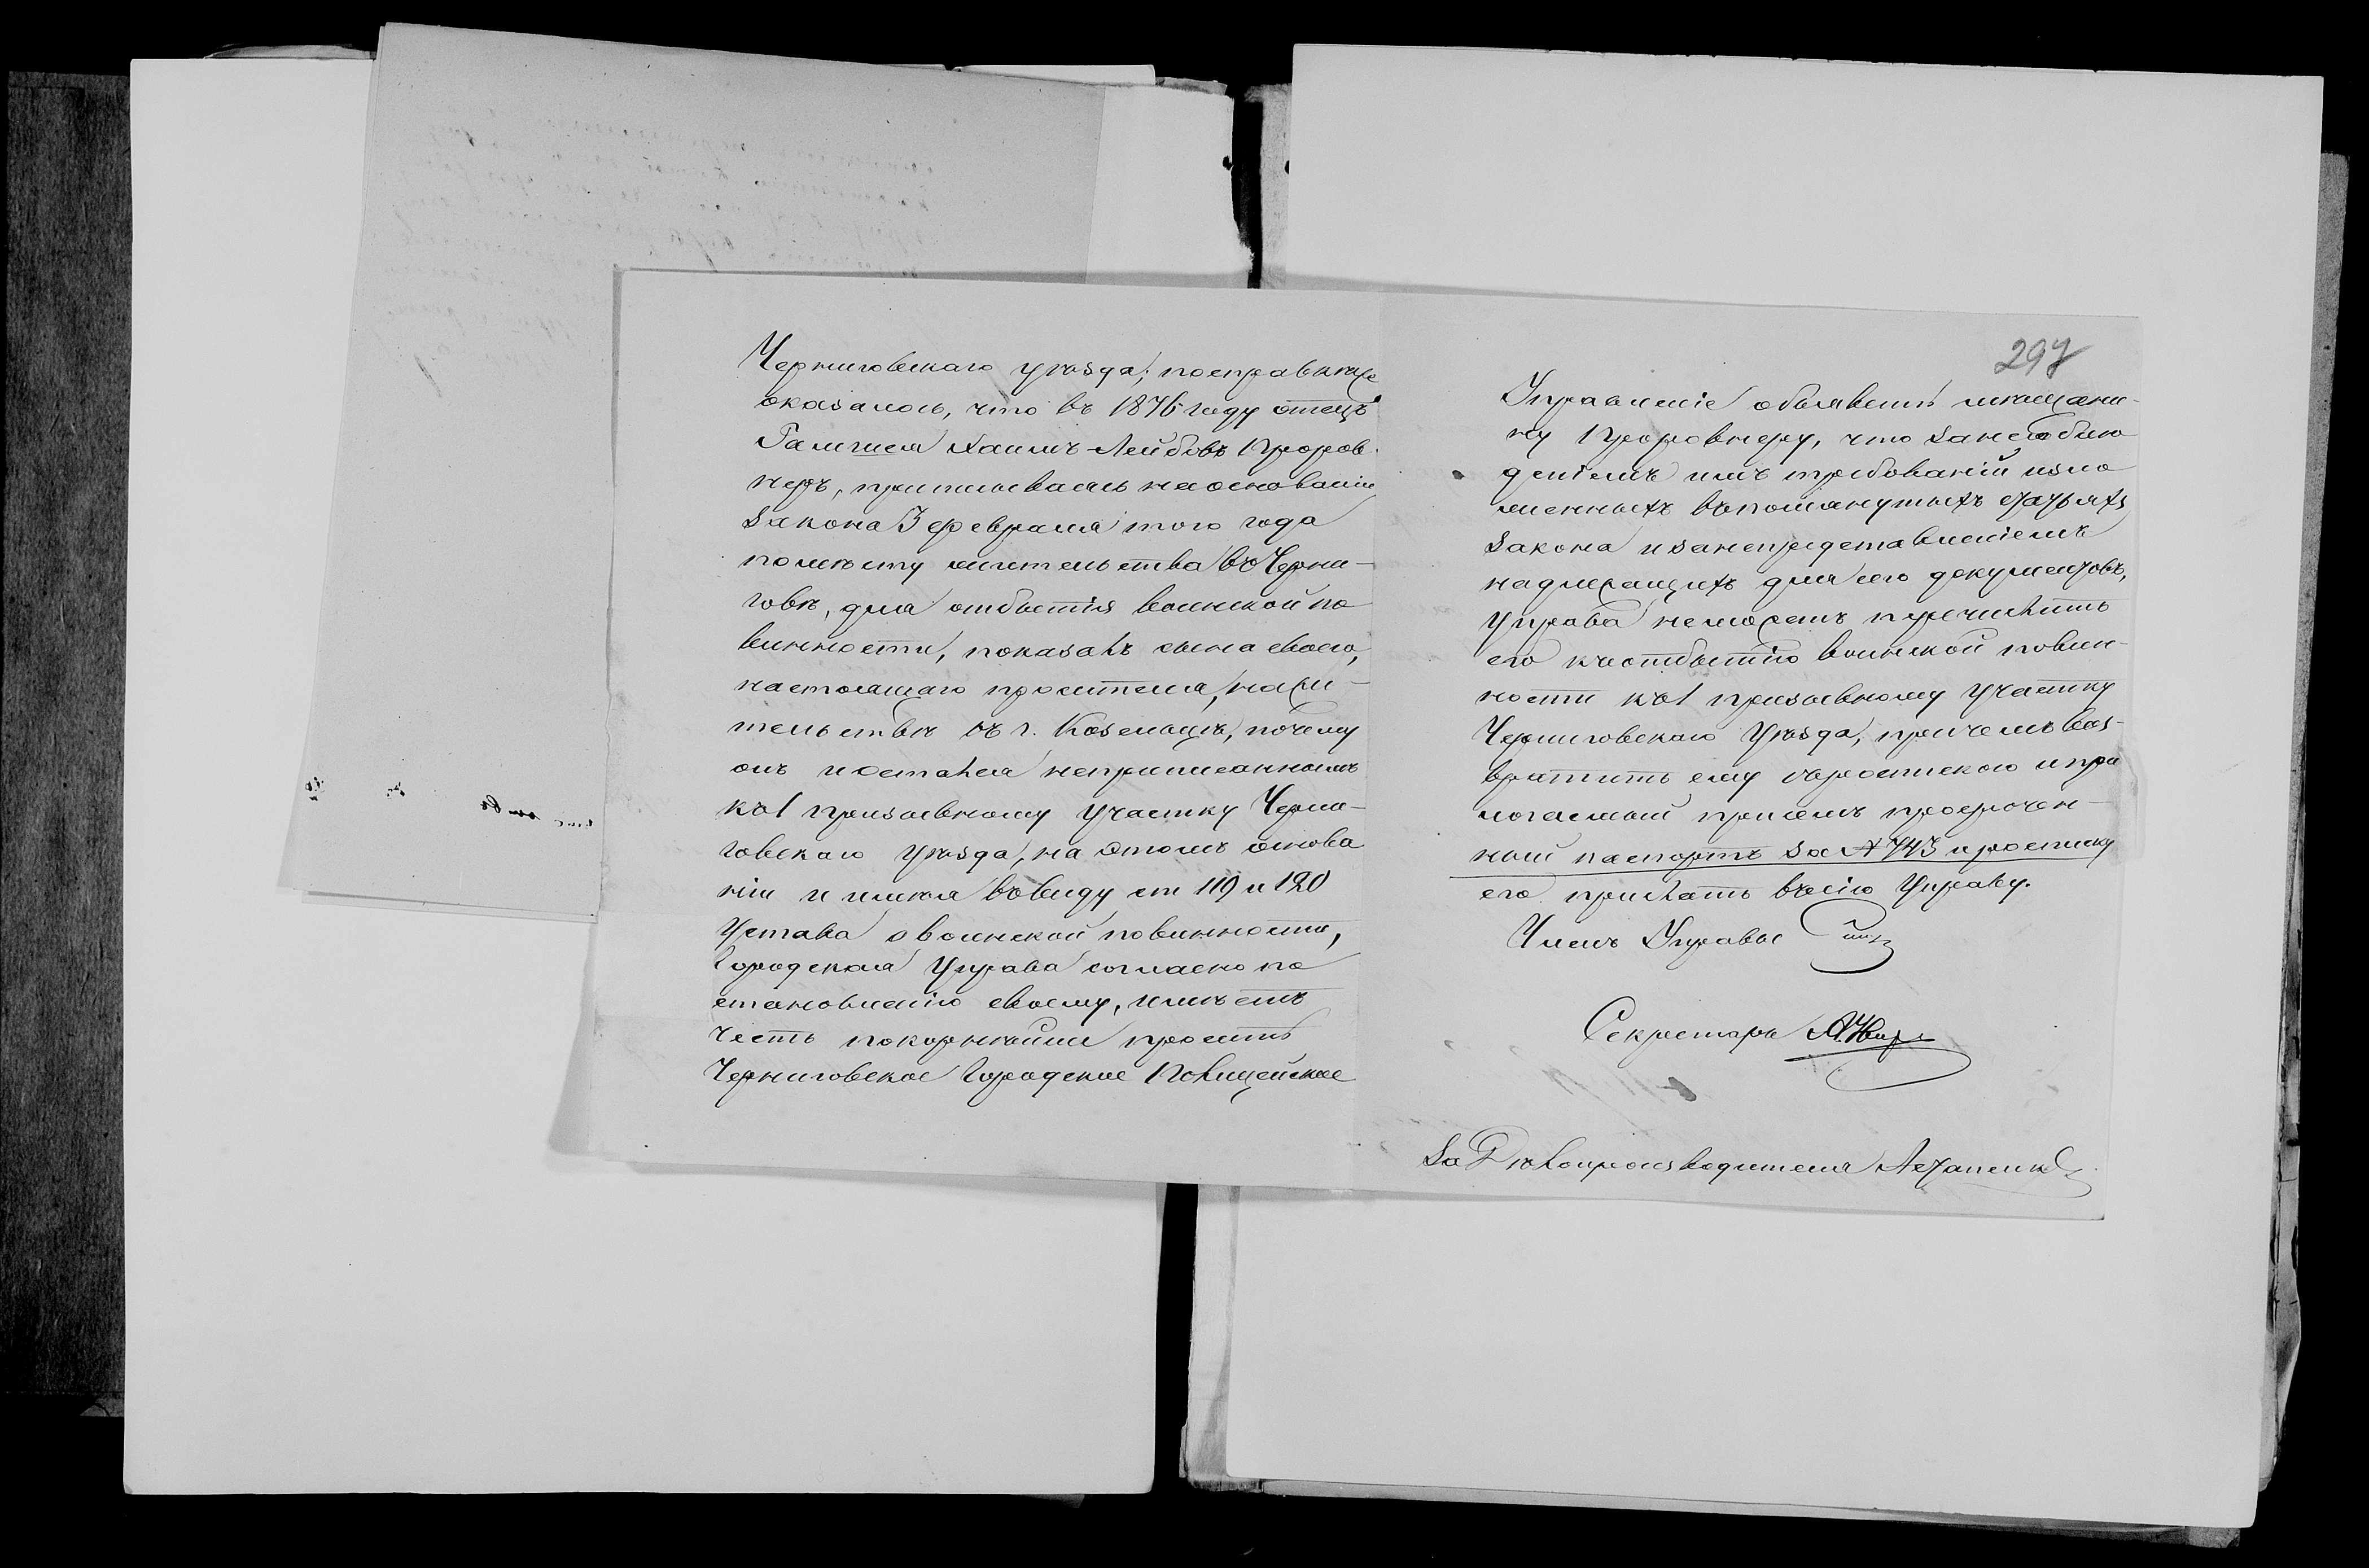 Черниговскаго уѣзда; посправкѣже
оказалось, что въ 1876 году отецъ
Галиеля Хаимъ-Лейбовъ Проров-
неръ, приписываясь на основаніи
закона 3 февраля того года
помѣсту жительства въ Черни-
говѣ, для отбытія воинской по
винности, показалъ сына своего,
настоящаго просителя, нажи-
тельствѣ въ г. Козельцѣ, почему
онъ иостался неприписаннымъ
къ 1 призывному участку Черни-
говскаго уѣзда, на этомъ основа
ніи и имѣя ввиду ст 119 и 120
Устава о воинской повинности,
Городская Управа согласно по
становленію своему, имѣетъ
честь покорнѣйше просить
Черниговское Городское Полицейское
297
Управленіе объявить мѣщани-
ну Проровнеру, что занесоблю
деніемъ имъ требованій изло
женныхъ въпомянутыхъ статьяхъ
закона изанепредставленіемъ
надлежащихъ для сего документовъ,
Управа неможетъ причислить
его къотбытію воинской повин-
ности къ 1 призывному участку
Черниговскаго Уѣзда, причемъ воз-
вратить ему съроспискою и при
логаемый присемъ просрочен-
ный паспортъ за № 743 и росписку
его прислать въсію Управу.
Членъ Управы
Секретарь
За Дѣлопроизводителя